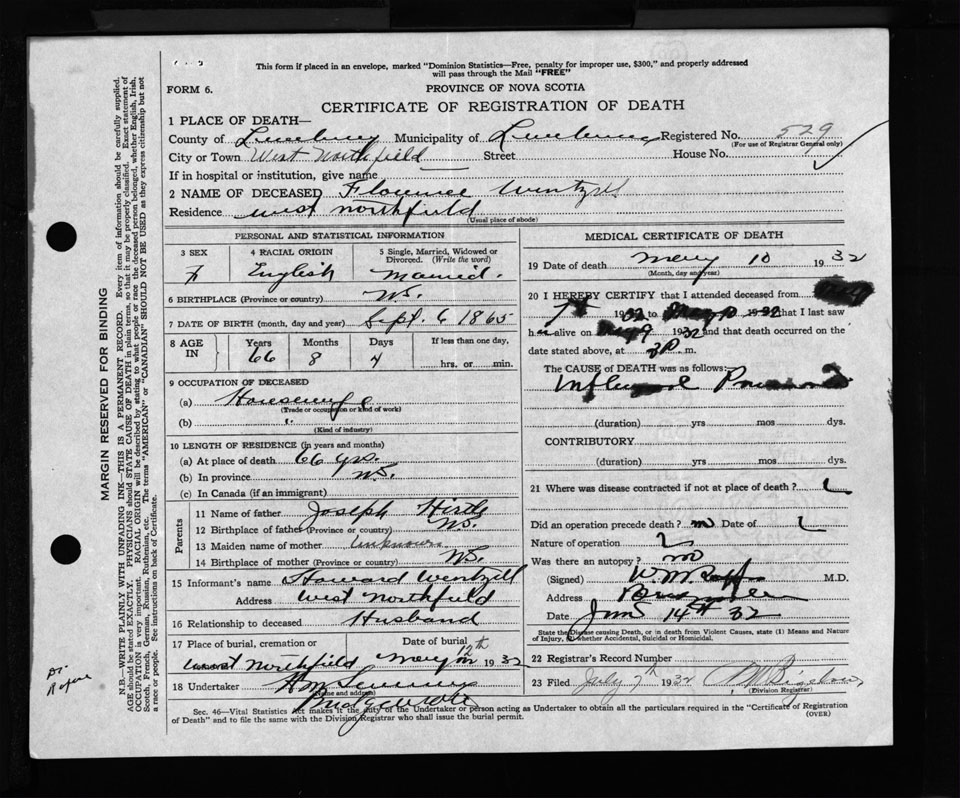 This form if placed in an envelope, marked "Dominion Statistics—Free, penalty for improper use, $300," and properly addressed
will pass through the Mail "FREE"
FORM 6.
PROVINCE OF NOVA SCOTIA
CERTIFICATE OF REGISTRATION OF DEATH
1 PLACE OF DEATH—
County of Lunenburg Municipality of Lunenburg Registered No. 529
(For use of Registrar General only)
City or Town West Northfield Street House No.
If in hospital or institution, give name
2 NAME OF DECEASED Florence Wentzell
Residence West Northfield
(Usual place of abode)
PERSONAL AND STATISTICAL INFORMATION
3 SEX 4 RACIAL ORIGIN 5 Single, Married, Widowed or
Divorced. (Write the word)
F English Married.
6 BIRTHPLACE (Province or country) N.S.
7 DATE OF BIRTH (month, day and year) Sept. 6 1865
8 AGE IN Years Months Days If less than one day,
66 8 4 hrs. or min.
9 OCCUPATION OF DECEASED
(a) Housewife
(Trade or occupation or kind of work)
(b)
(Kind of industry)
10 LENGTH OF RESIDENCE (in years and months)
(a) At place of death 66 yrs.
(b) In province N.S.
(c) In Canada (if an immigrant)
Parents
11 Name of father Joseph Hirtle
12 Birthplace of father (Province or country) N.S.
13 Maiden name of mother Unknown
14 Birthplace of mother (Province or country) N.S.
15 Informant's name Howard Wentzell
Address West Northfield
16 Relationship to deceased Husband
17 Place of burial, cremation or Date of burial
West Northfield May 12th 1932
18 Undertaker
(Name and address)
Bridgewater
MEDICAL CERTIFICATE OF DEATH
19 Date of death May 10 1932
(Month, day and year)
20 I HEREBY CERTIFY that I attended deceased from
7th 1932 to May 1932 that I last saw
h alive on May 9 1932 and that death occurred on the
date stated above, at 3 P. m.
The CAUSE of DEATH was as follows:
Influenzal Pneumonia
(duration) yrs mos dys.
CONTRIBUTORY
(duration) yrs mos dys.
21 Where was disease contracted if not at place of death?
Did an operation precede death? no Date of
Nature of operation
Was there an autopsy? no
(Signed) M.D.
Address
Date June 14th 32
State the Disease causing Death, or in death from Violent Causes, state (1) Means and Nature
of Injury, (2) whether Accidental, Suicidal or Homicidal.
22 Registrar's Record Number
23 Filed July 7th 1932
(Division Registrar)
Sec. 46—Vital Statistics Act makes it the duty of the Undertaker or person acting as Undertaker to obtain all the particulars required in the "Certificate of Registration
of Death" and to file the same with the Division Registrar who shall issue the burial permit.
(OVER)
MARGIN RESERVED FOR BINDING
N.B.—WRITE PLAINLY WITH UNFADING INK—THIS IS A PERMANENT RECORD. Every item of information should be carefully supplied.
AGE should be stated EXACTLY. PHYSICIANS should STATE CAUSE OF DEATH in plain terms, so that it may be properly classified. Exact statement of
OCCUPATION is very important. RACIAL ORIGIN will be described by stating to what people or race the deceased person belonged, whether English, Irish,
Scotch, French, German, Russian, Ruthenian, etc. The terms "AMERICAN" or "CANADIAN" SHOULD NOT BE USED as they express citizenship but not
a race or people. See instructions on back of Certificate.